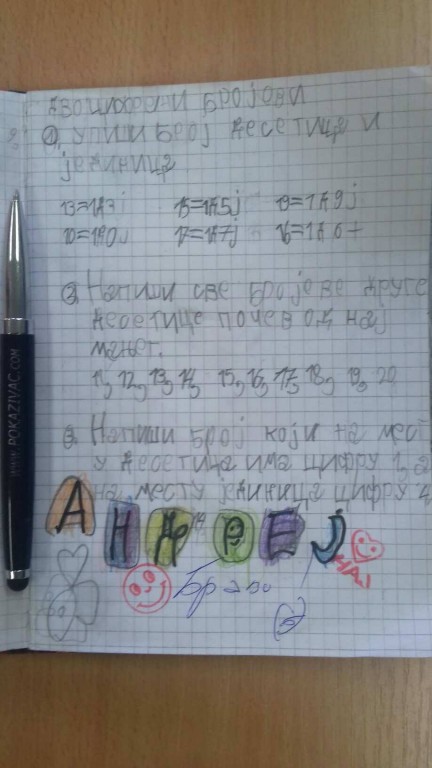 ДВОЦИФРЕНИ БРОЈОВИ
1. УПИШИ БРОЈ ДЕСЕТИЦА И
ЈЕДИНИЦА
13=1Д3Ј 15=1Д5Ј 19=1Д9Ј
10=1Д0Ј 17=1Д7Ј 16=1Д6Ј
2. НАПИШИ СВЕ БРОЈЕВЕ ДРУГЕ
ДЕСЕТИЦЕ ПОЧЕВ ОД НАЈ
МАЊЕГ.
11, 12, 13, 14, 15, 16, 17, 18, 19, 20
3. НАПИШИ БРОЈ КОЈИ НА МЕСТ
У ДЕСЕТИЦА ИМА ЦИФРУ 1, А
НА МЕСТУ ЈЕДИНИЦА ЦИФРУ 4
14
АНДРЕЈ
Браво
WWW.POKAZIVAC.COM